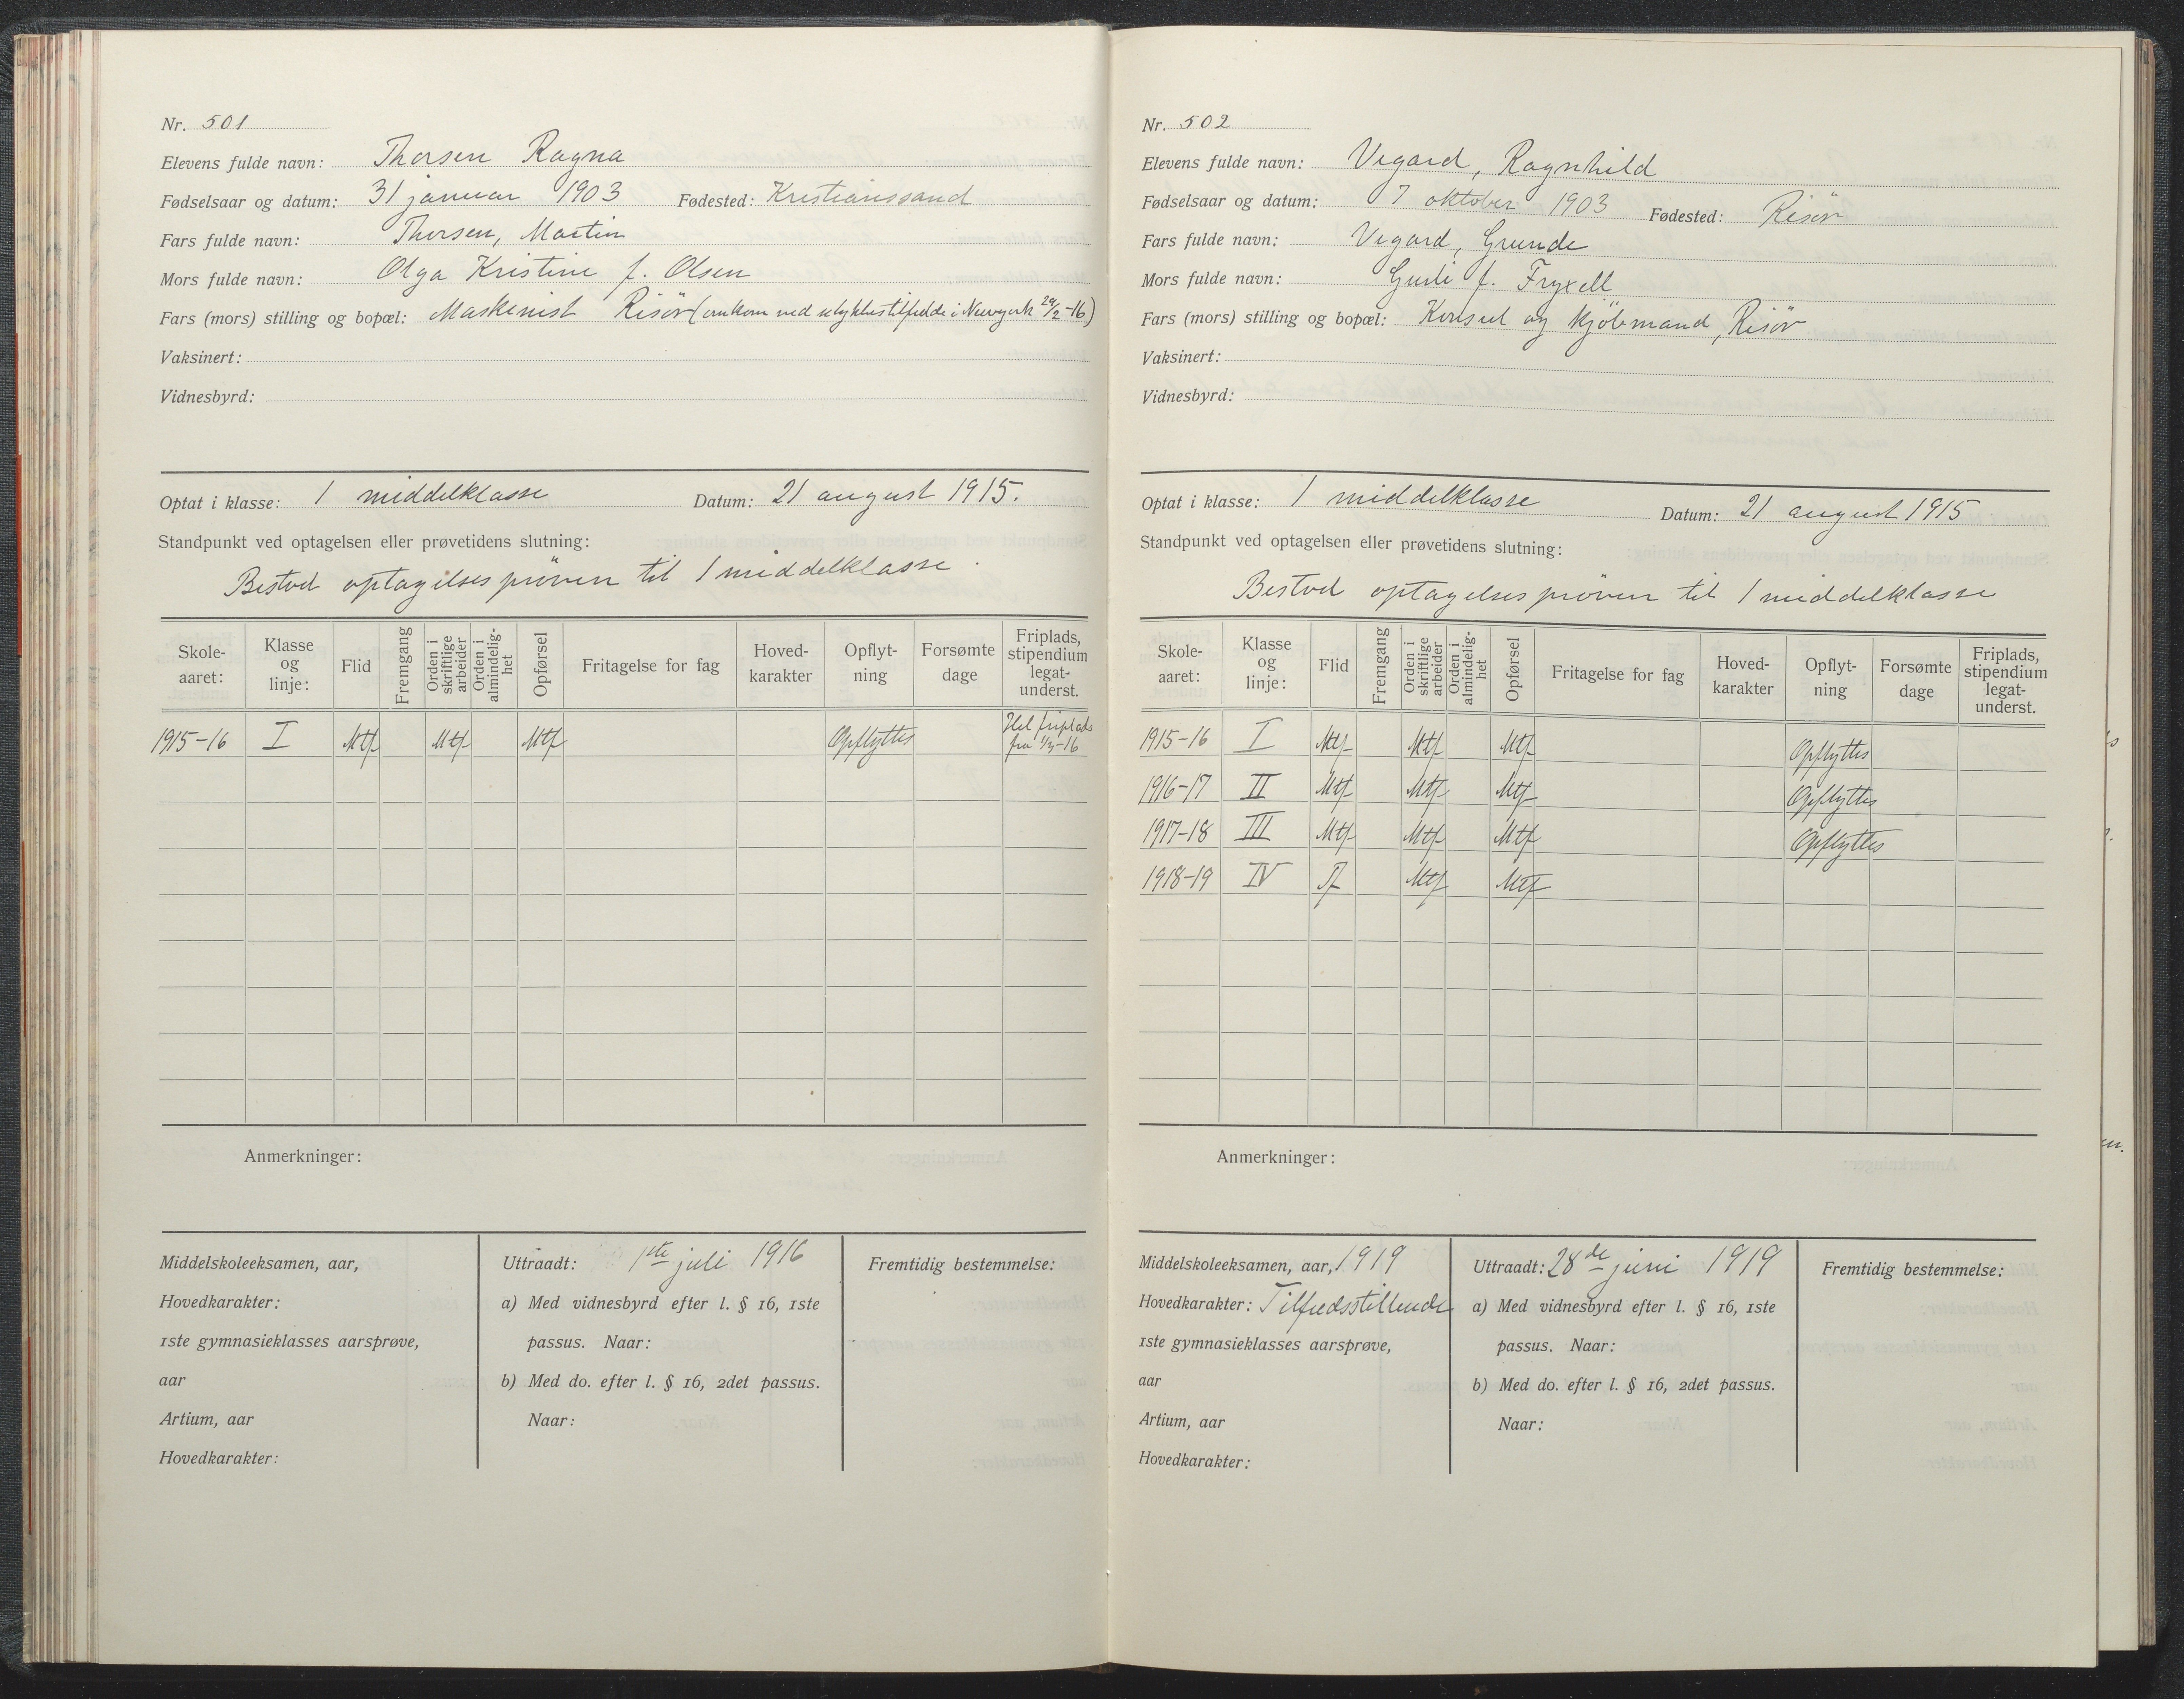 Nr. 501
Elevens fulde navn: Thorsen Ragna
Fødselsaar og datum: 31 januar 1903 Fødested: Kristianssand
Fars fulde navn: Thorsen, Martin
Mors fulde navn: Olga Kristine f. Olsen
Fars (mors) stilling og bopæl: Maskinist Risör (omkom ved ulykkestilfelde i Newyork 29/2-16)
Vaksinert:
Vidnesbyrd:
Optat i klasse: 1 middelklasse Datum: 21 august 1915.
Standpunkt ved optagelsen eller prøvetidens slutning:
Bestod optagelsespröven til 1 middelklasse.
Skole-aaret: Klasse og linje: Flid Fremgang Orden i skriftlige arbeider Orden i almindelig-het Opførsel Fritagelse for fag Hoved-karakter Opflyt-ning Forsømte dage Friplads, stipendium legat-underst.
1915-16 I Mtf Mtf Mtf Opflyttes Hel friplads fra 1/3-16
Anmerkninger:
Middelskoleeksamen, aar,
Hovedkarakter:
1ste gymnasieklasses aarsprøve,
aar
Artium, aar
Hovedkarakter:
Uttraadt: 1ste juli 1916
a) Med vidnesbyrd efter l. § 16, 1ste
passus. Naar:
b) Med do. efter l. § 16, 2det passus.
Naar:
Fremtidig bestemmelse:
Nr. 502
Elevens fulde navn: Vegard, Ragnhild
Fødselsaar og datum: 7 oktober 1903 Fødested: Risör
Fars fulde navn: Vegard, Grunde
Mors fulde navn: Gurli f. Fryxell
Fars (mors) stilling og bopæl: Konsul og kjöbmand, Risör
Vaksinert:
Vidnesbyrd:
Optat i klasse: 1 middelklasse Datum: 21 august 1915
Standpunkt ved optagelsen eller prøvetidens slutning:
Bestod optagelsespröven til 1 middelklasse
Skole-aaret: Klasse og linje: Flid Fremgang Orden i skriftlige arbeider Orden i almindelig-het Opførsel Fritagelse for fag Hoved-karakter Opflyt-ning Forsømte dage Friplads, stipendium legat-underst.
1915-16 I Mtf Mtf Mtf Opflyttes
1916-17 II Mtf Mtf Mtf Opflyttes
1917-18 III Mtf Mtf Mtf Opflyttes
1918-19 IV Tf Mtf Mtf
Anmerkninger:
Middelskoleeksamen, aar, 1919
Hovedkarakter: Tilfredsstillende
1ste gymnasieklasses aarsprøve,
aar
Artium, aar
Hovedkarakter:
Uttraadt: 28de juni 1919
a) Med vidnesbyrd efter l. § 16, 1ste
passus. Naar:
b) Med do. efter l. § 16, 2det passus.
Naar:
Fremtidig bestemmelse: